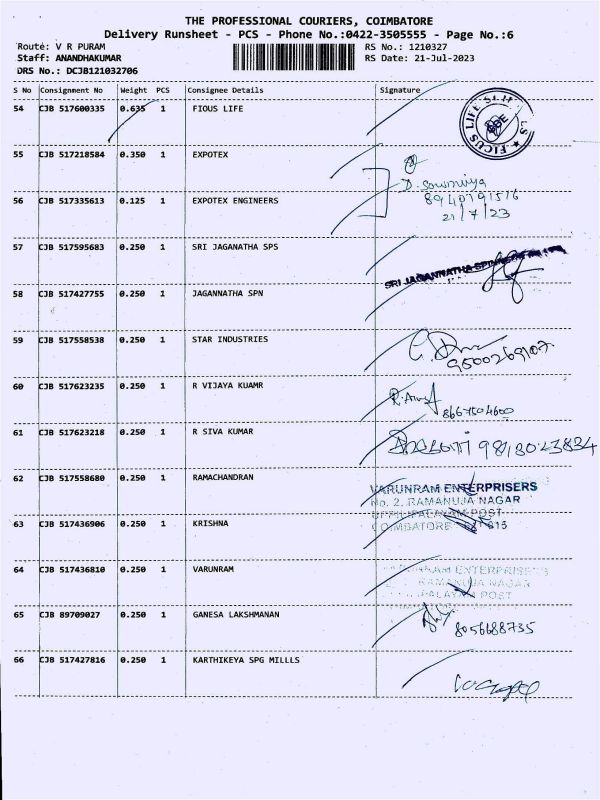 THE PROFESSIONAL COURIERS, COIMBATORE
Delivery Runsheet - PCS - Phone No.:0422-3505555 - Page No.:6
Route: V R PURAM RS No.: 1210327
Staff: ANANDHAKUMAR RS Date: 21-Jul-2023
DRS No.: DCJB121032706
S No Consignment No Weight PCS Consignee Details Signature
54 CJB 517600335 0.635 1 FIOUS LIFE
FICUS LIFE
55 CJB 517218584 0.350 1 EXPOTEX
D. Sowmiya
56 CJB 517335613 0.125 1 EXPOTEX ENGINEERS
21/7/23
57 CJB 517595683 0.250 1 SRI JAGANATHA SPS
SRI JAGANNATHA
58 CJB 517427755 0.250 1 JAGANNATHA SPN
59 CJB 517558538 0.250 1 STAR INDUSTRIES
9500269107
60 CJB 517623235 0.250 1 R VIJAYA KUAMR
8667504600
61 CJB 517623218 0.250 1 R SIVA KUMAR
62 CJB 517558680 0.250 1 RAMACHANDRAN
VARUNRAM ENTERPRISERS
No. 2, RAMANUJA NAGAR
UPPILIPALAYAM POST
COIMBATORE
63 CJB 517436906 0.250 1 KRISHNA
64 CJB 517436810 0.250 1 VARUNRAM
VARUNRAM ENTERPRISERS
RAMANUJA NAGAR
POST
65 CJB 89709027 0.250 1 GANESA LAKSHMANAN
8056688735
66 CJB 517427816 0.250 1 KARTHIKEYA SPG MILLLS